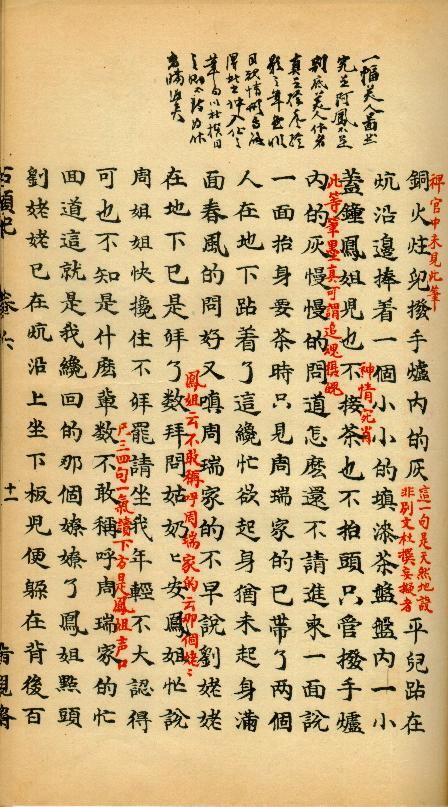 一幅美人
稗官中未見此筆
銅火炷兒撥手爐內的灰
這一句是天然地設
非別文杜撰妄擬者
平兒跕在
炕沿邊捧着一個小小的填漆茶盤盤內一小
蓋鐘鳳姐兒也不接茶也不抬頭只管撥手爐
神情宛肖
此等筆墨真可謂追魂攝魄
內的灰慢慢的問道怎麽還不請進來一面說
一面抬身要茶時只見周瑞家的已帶了两個
人在地下跕着了這纔忙欲起身猶未起身滿
面春風的問好又嗔周瑞家的不早說劉姥姥
鳳姐云不敢稱呼周瑞家的云那個姥〻
在地下已是拜了数拜問姑奶〻安鳳姐忙說
周姐姐快攙住不拜罷請坐我年輕不大認得
凡三四句一氣讀下方是鳳姐声口
可也不知是什麽輩数不敢稱呼周瑞家的忙
回道這就是我纔回的那個嫽嫽了鳳姐點頭
劉姥姥已在炕沿上坐下板兒便躱在背後百
石頭記 卷六 十一 脂硯齋